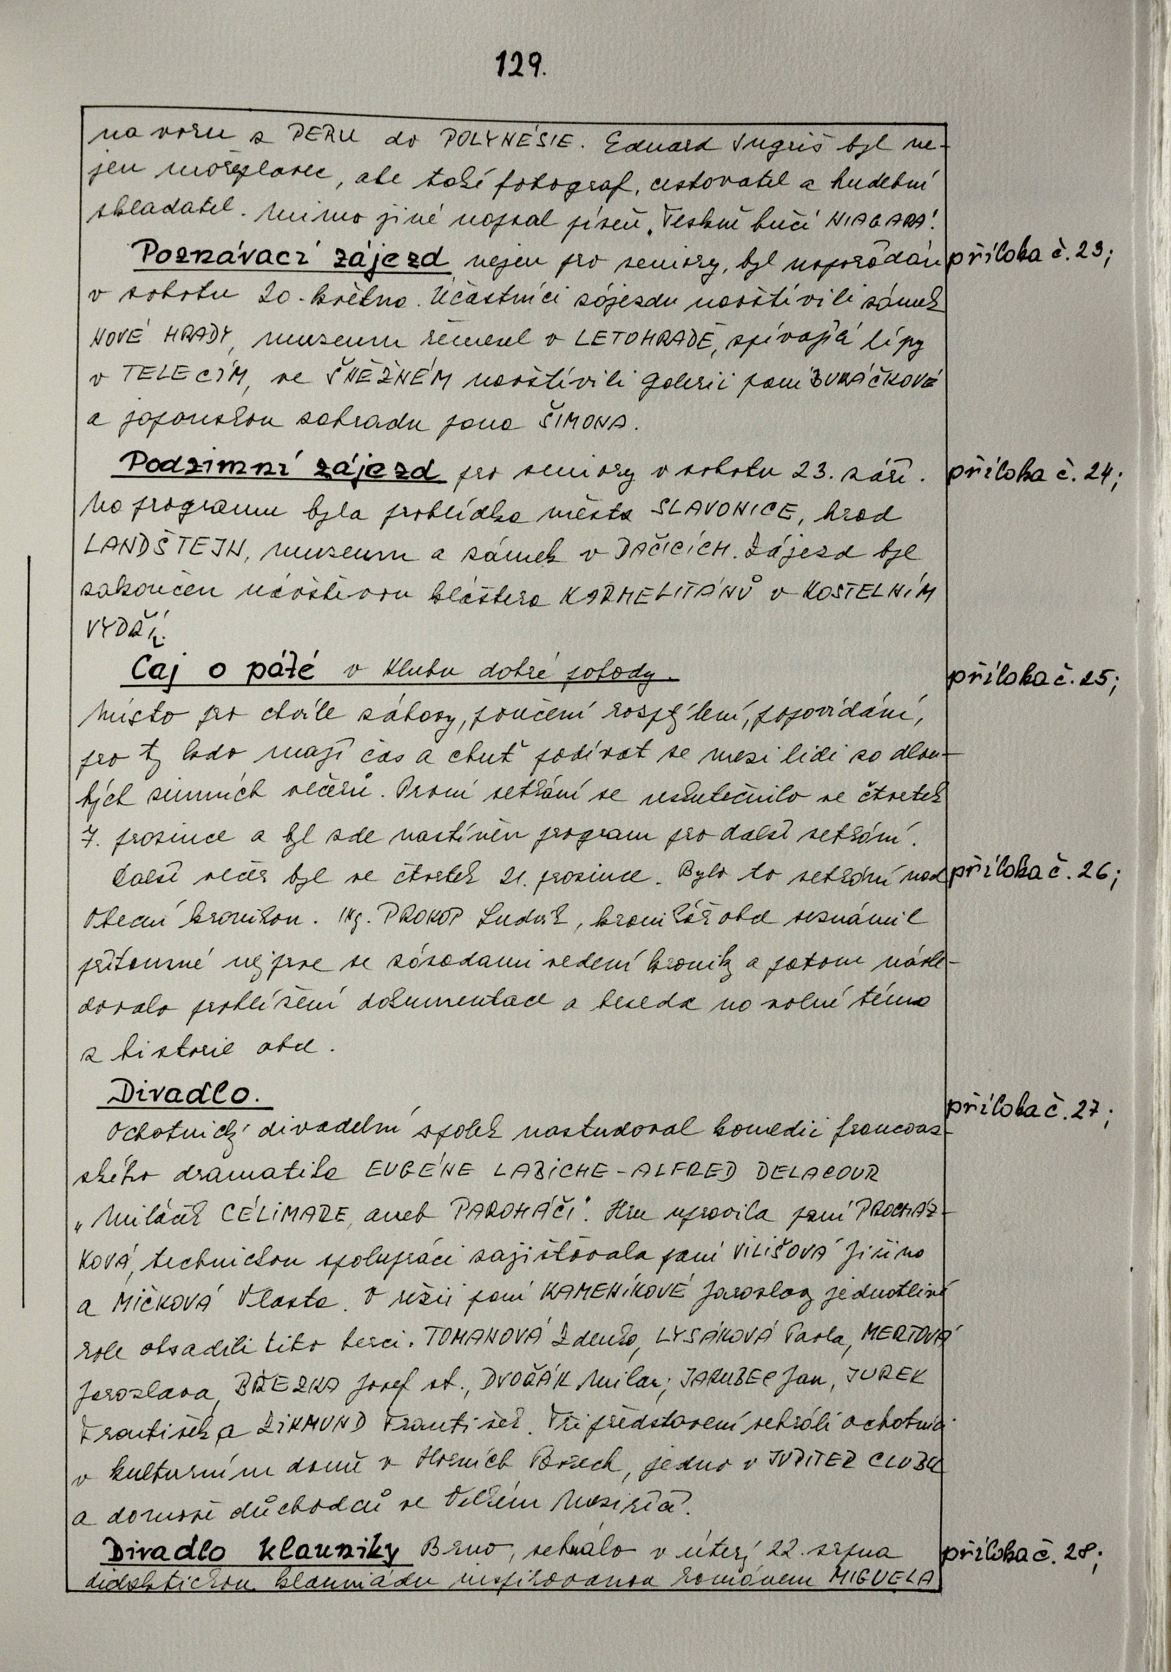 129.
na voru z PERU do POLYNÉSIE. Eduard Ingriš byl ne-
jen mořeplavec, ale také fotograf, cestovatel a hudební
skladatel. Mimo jiné napsal píseň „Teskně hučí NIAGARA".
Poznávací zájezd nejen pro seniory, byl uspořádán příloha č. 23;
v sobotu 20. května. Účastníci zájezdu navštívili zámek
NOVÉ HRADY, muzeum řemesel v LETOHRADĚ, zpívající lípy
v TELECÍM, ve SNĚŽNÉM navštívili galerii paní
a japonskou zahradu pana ŠIMONA.
Podzimní zájezd pro seniory v sobotu 23. září. příloha č. 24;
Na programu byla prohlídka města SLAVONICE, hrad
LANDŠTEJN, muzeum a zámek v DAČICÍCH. Zájezd byl
zakončen návštěvou kláštera KARMELITÁNŮ v KOSTELNÍM
VYDŘÍ.
Čaj o páté v Klubu dobré pohody. příloha č. 25;
Místo pro chvíle zábavy, poučení rozptýlení, popovídání,
pro ty kdo mají čas a chuť podívat se mezi lidi za dlou-
hých zimních večerů. První setkání se uskutečnilo ve čtvrtek
7. prosince a byl zde nastíněn program pro další setkání.
Další večer byl ve čtvrtek 21. prosince. Bylo to setkání nad příloha č. 26;
Obecní kronikou. Ing. PROKOP Luděk, kronikář obce seznámil
přítomné nejprve se zásadami vedení kroniky a potom násle-
dovalo prohlížení dokumentace a beseda na volné téma
z historie obce.
Divadlo. příloha č. 27;
Ochotnický divadelní spolek nastudoval komedii francouz-
ského dramatika EUGÉNE LABICHE - ALFRED DELACOUR
„Miláček CÉLIMARE, aneb PAROHÁČI". Hru upravila paní PROCHÁZ-
KOVÁ, technickou spolupráci zajišťovala paní VILIŠOVÁ Jiřina
a MIČKOVÁ Vlasta. V režii paní KAMENÍKOVÉ Jaroslavy jednotlivé
role obsadili tito herci. TOMANOVÁ Zdenka, LYSÁKOVÁ Pavla, MERTOVÁ
Jaroslava, BŘEZKA Josef st., DVOŘÁK Milan, JAKUBEC Jan, JUREK
František a ZIKMUND František. Tři představení sehráli ochotníci
v kulturním domě v Horních Borech, jedno v JUPITER CLUBU
a domově důchodců ve Velkém Meziříčí.
Divadlo klauniky Brno, sehrálo v úterý 22. srpna příloha č. 28;
didaktickou klauniádu inspirovanou románem MIGUELA